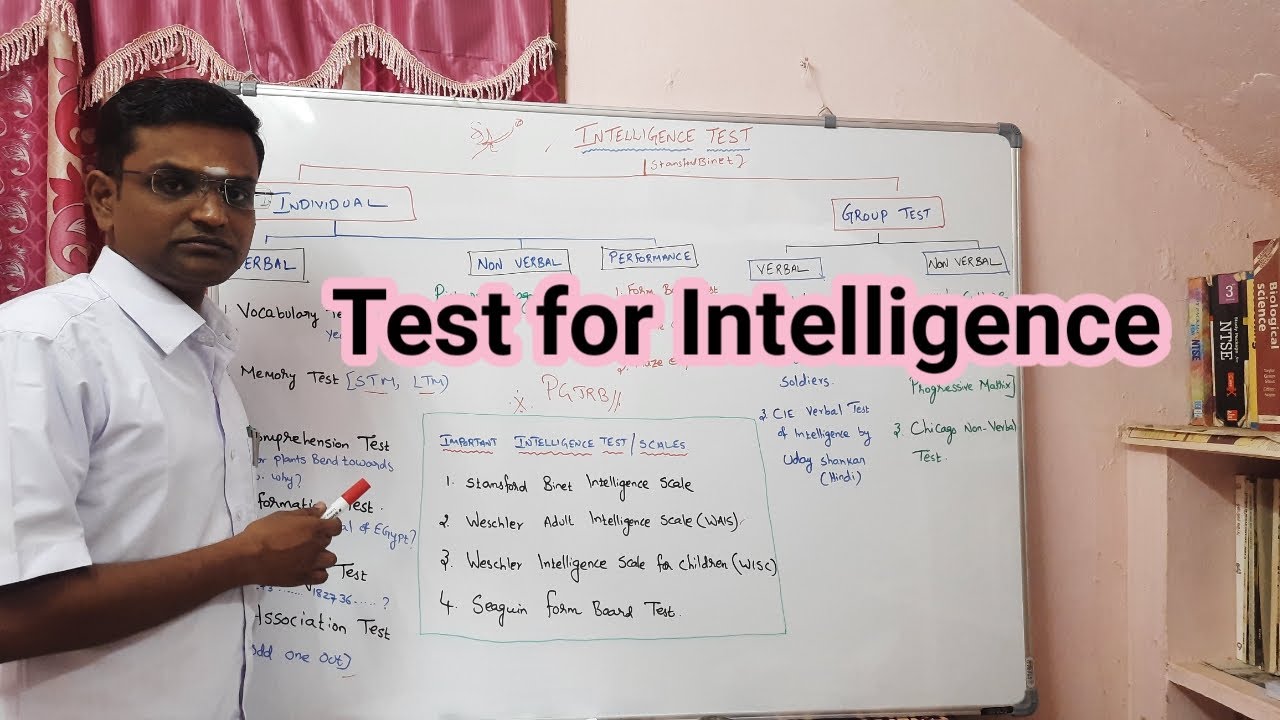 INTELLIGENCE TEST
INDIVIDUAL
GROUP TEST
VERBAL
NON VERBAL
PERFORMANCE
VERBAL
NON VERBAL
Test for Intelligence
Vocabulary
1. Form
Memory Test [STM, LTM)
Soldiers
Progressive Matrix]
PGTRB
Comprehension Test
plants Bend towards
why?
Test.
of EGypt?
Test
182736 ..... ?
Association Test
odd one out)
IMPORTANT INTELLIGENCE TEST / SCALES
1. Stansford Binet Intelligence Scale
2 Weschler Adult Intelligence Scale (WAIS)
3. Weschler Intelligence Scale for Children (WISC)
4. Seaguin Form Board Test.
2 CIE Verbal Test
of Intelligence by
Uday Shankar
(Hindi)
3. Chicago Non-Verbal
Test.
3
NTSE
Biological science
NTSE